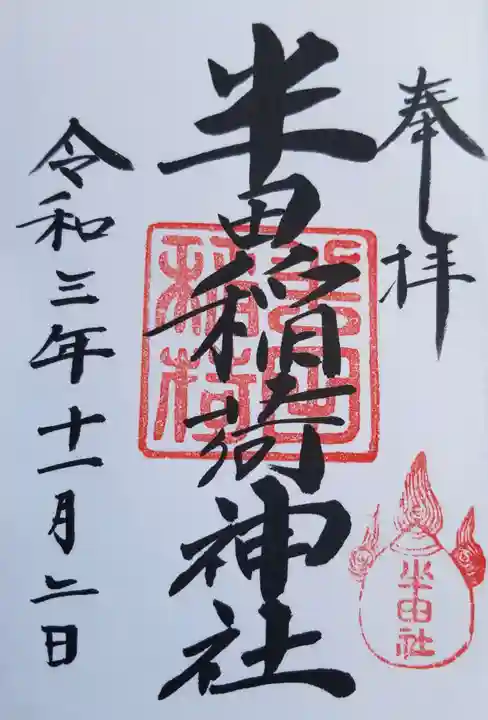 奉拝
半田稲荷神社
半田稲荷
半田社
令和三年十一月二日